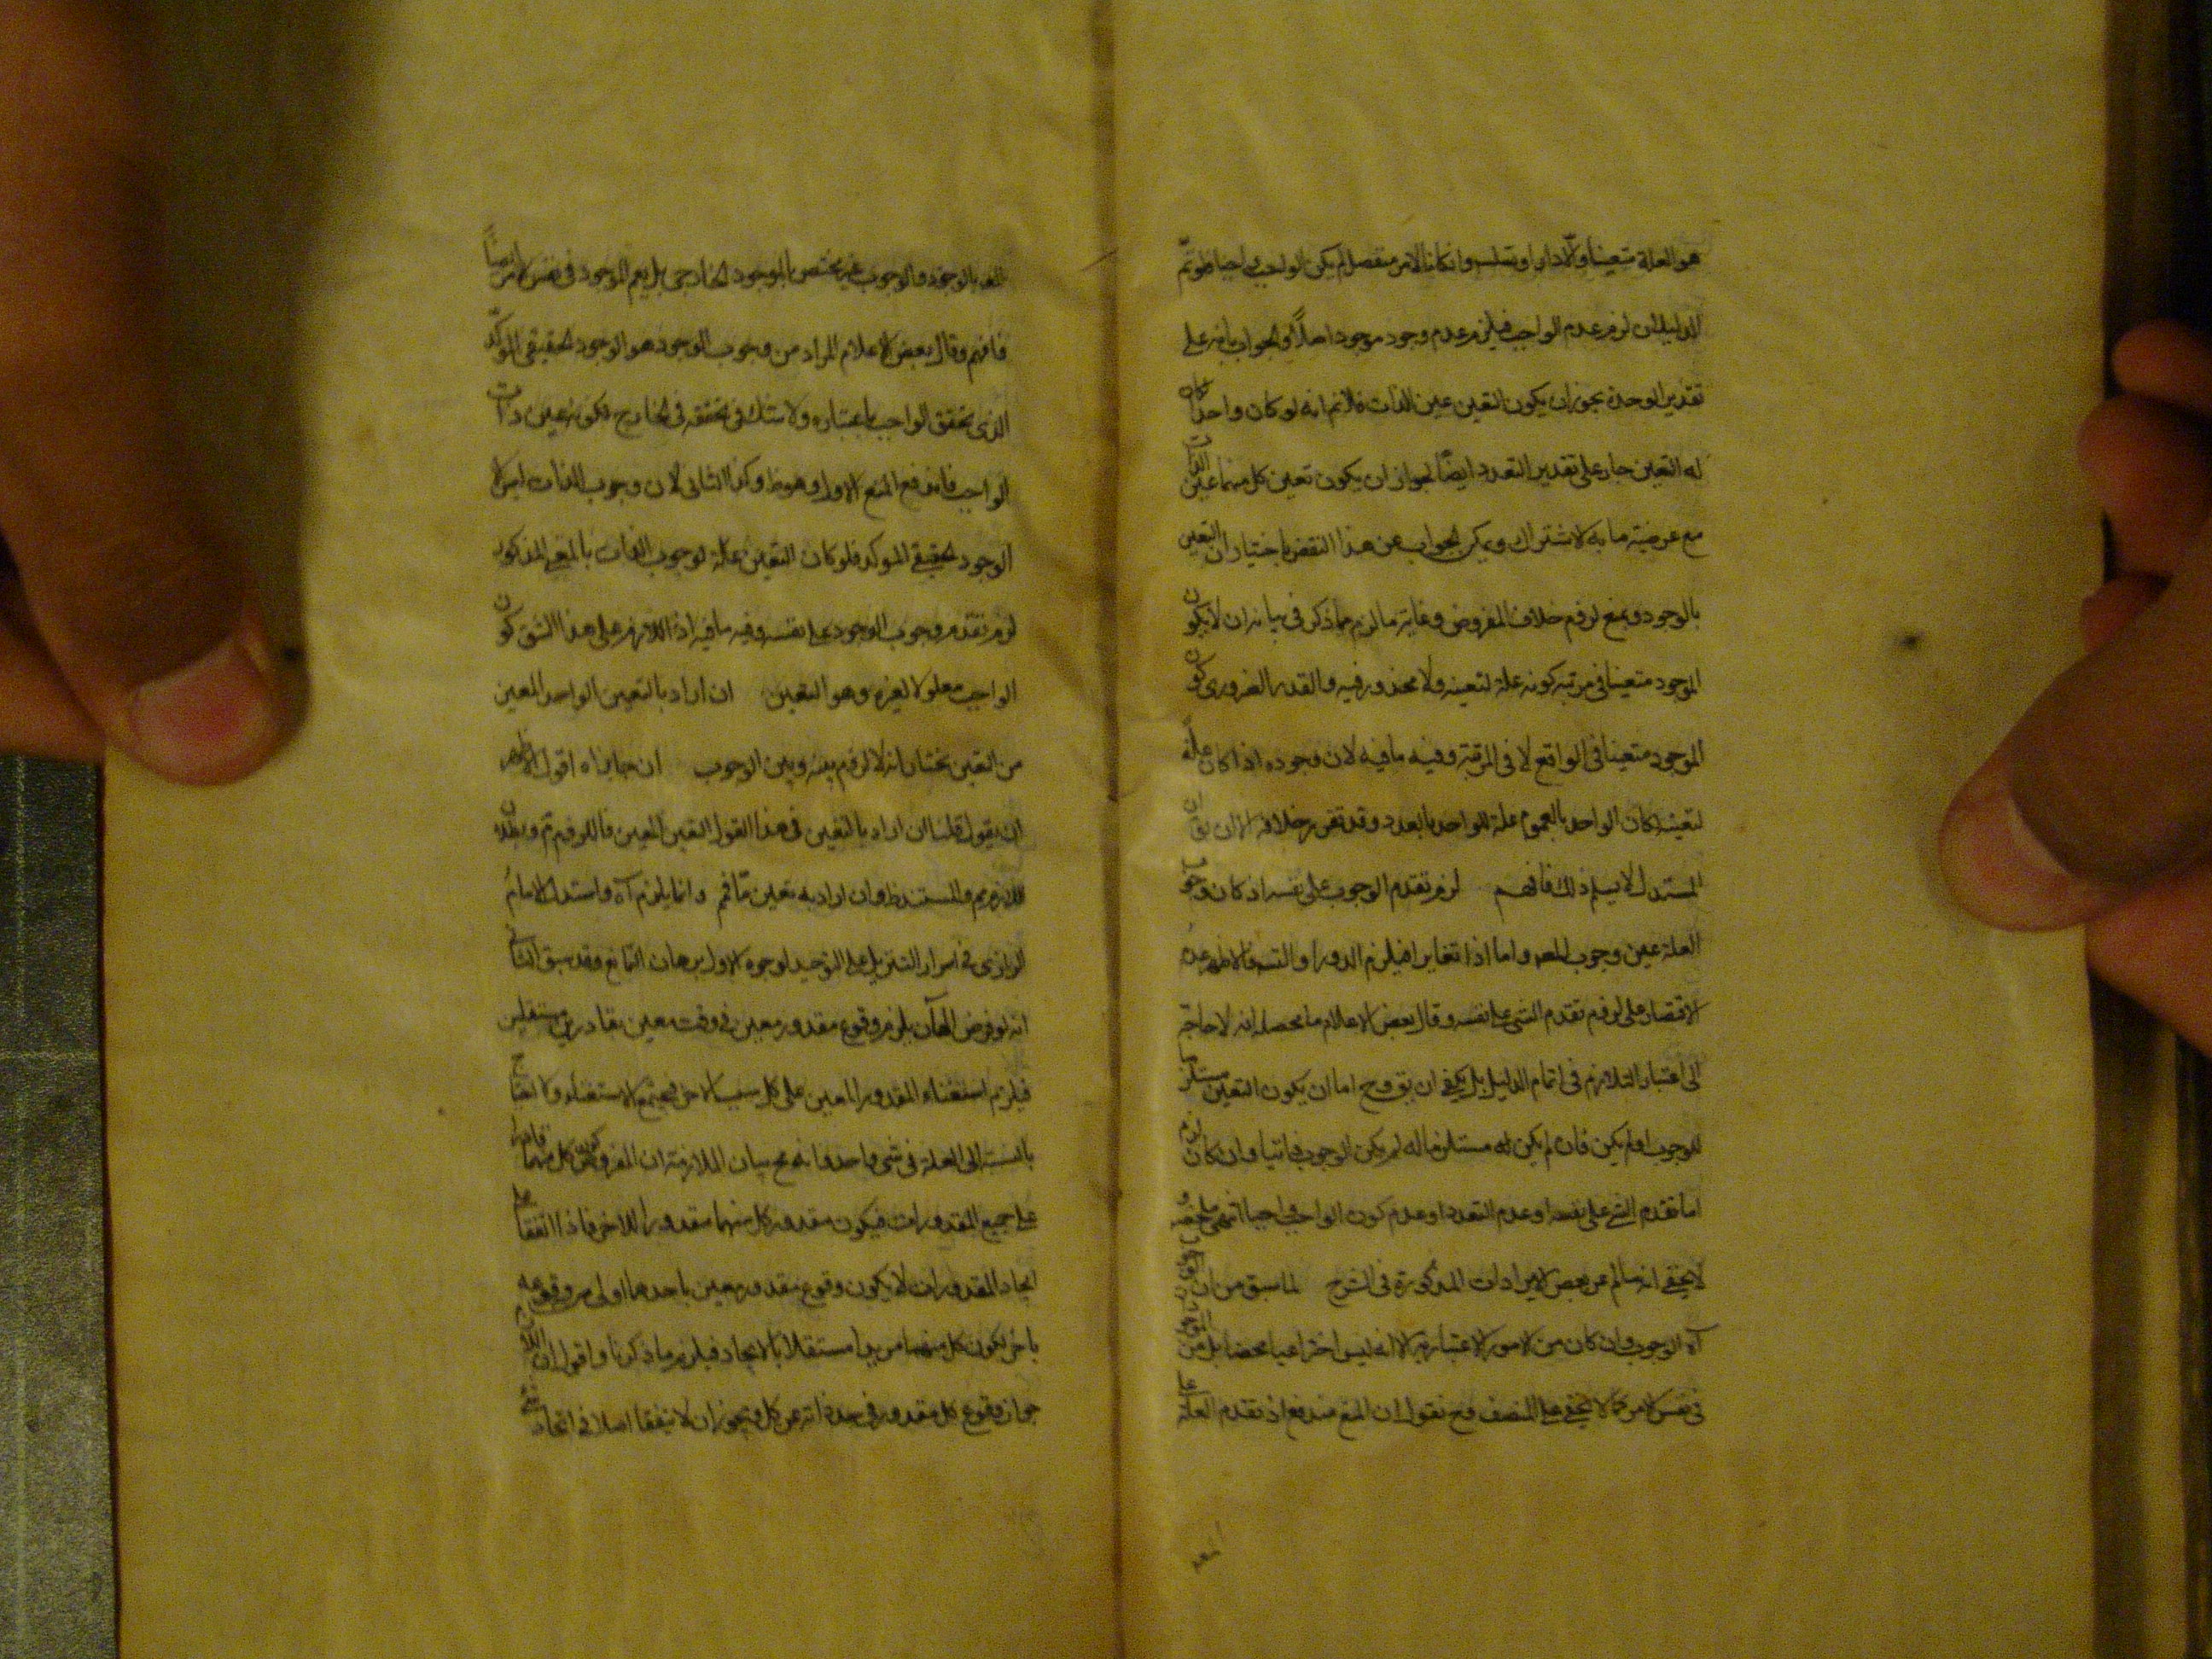 هو العلة متعينا والا دار او تسلسل وان كانا لامر منفصل لم يكن الواجب واجبا فلو تم
الدليلان لزم عدم الواجب فيلزم عدم وجود موجود اصلا والجواب بانه على
تقدير الوحدة يجوز ان يكون التعين عين الذات فلا نم انه لو كان واحدا كان
له التعين جار على تقدير التعدد ايضا لجواز ان يكون تعين كل منهما عين الذات
مع عرضية ما به الاشتراك ويمكن الجواب عن هذا النقض باختيار ان التعين
بالوجود ويمنع لزوم خلاف المفروض وغاية ما لزم مما ذكر في بيانه ان لا يكون
الموجود متعينا في مرتبة كونه علة لتعينه ولا محذور فيه والقدر الضروري كون
الموجود متعينا في الواقع لا في المرتبة وفيه ما فيه لان وجوده اذا كان علة
لتعينه كان الواحد بالعموم علة للواحد بالعدد وقد تقرر خلافه الا ان يق ان
المستدل لا يسلم ذلك فافهم لزم تقدم الوجوب على نفسه اذ كان وجوب
العلة عين وجوب المعه واما اذا تغايرا فيلزم الدور او التسه فالاظهر عدم
الاقتصار على لزوم تقدم الشي على نفسه وقال بعض الاعلام ما محصله انه لا حاجة
الى اعتبار التلازم في اتمام الدليل بل يكفي ان يق وح اما ان يكون التعين مستلزما
للوجوب او لم يكن فان لم يكن له مستلزما له لم يكن الوجوب ذاتيا وان كان لزم
اما تقدم الشي على نفسه او عدم التعدد او عدم كون الواجب واجبا انتهى ملخصه و
لا يخفى انه سالم عن بعض الايرادات المذكورة في الشرح لما سبق من ان الوجوب
آه الوجوب وان كان من الامور الاعتبارية الا انه ليس اختراعيا محضا بل من الموجود
في نفس الامر كما لا يخفى على المنصف وح نقول ان المنع مندفع اذ تقدم العلة على
المعه
المعه بالوجود والوجوب غير مختص بالوجود الخارجي بل يعم الوجود في نفس الامر ايضا
فافهم وقال بعض الاعلام المراد من وجوب الوجود هو الوجود الحقيقي المؤكد
الذي يتحقق الواجب باعتباره ولا شك في تحققه في الخارج لكونه عين ذات
الواجب فاندفع المنع الاول وهو ظ وكذا الثاني لان وجوب الذات ليس الا
الوجود الحقيقي المؤكد فلو كان التعين علة لوجوب الذات بالمعنى المذكور
لزم تقدم وجوب الوجود على نفسه وفيه ما فيه اذ اللازم على هذا الشق كون
الواجب معلولا لغيره وهو التعين ان اراد بالتعين الواحد المعين
من التعين نختار انه لا لزوم بينه وبين الوجوب ان جاز اه اقول الاظهر
ان يقول قلنا ان اراد بالتعين في هذا القول التعين المعين فاللزوم تم وبطلان
اللازم مم والمستند ظ وان اراد به تعين ما فمم وانما يلزم آه واستدل الامام
الرازي في اسرار التنزيل على التوحيد لوجوه الاول برهان التمانع وقد سبق الثاني
انه لو فرض الهان يلزم وقوع مقدور معين في وقت معين بقادرين مستقلين
فيلزم استغناء المقدور المعين على كل سبب الاخر فيجتمع الاستغناء والاحتياج
بالنسبة الى العلة في شي واحد وانه مح بيان الملازمة ان المفروض كون كل منهما قادرا
على جميع المقدورات فيكون مقدور كل منهما مقدورا للاخر فاذا اتفقا على
ايجاد المقدورات لا يكون وقوع مقدور معين باحدهما اولى من وقوعه
باخر لكون كل منهما مستقلا بالايجاد فيلزم ما ذكرنا واقول ان اللازم
جواز وقوع كل مقدور في حد ذاته عن كل ويجوز ان لا يتفقا اصلا في ايجاد